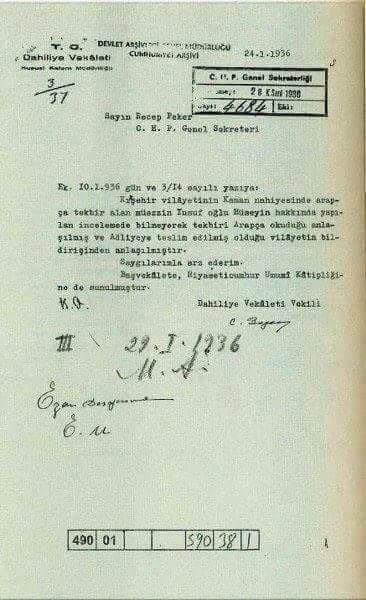 T. C.
Dahiliye Vekâleti
Hususi Kalem Müdürlüğü
DEVLET ARŞİVLERİ GENEL MÜDÜRLÜĞÜ
CUMHURİYET ARŞİVİ
24.1.1936
3
37
C. H. P. Genel Sekreterliği
28 K.Sani 1936
4684 Eki:
Sayın Recep Peker
C. H. P. Genel Sekreteri
Ek. 10.1.936 gün ve 3/14 sayılı yazıya:
Kırşehir vilâyetinin Kaman nahiyesinde arap-
ça tekbir alan müezzin Yusuf oğlu Hüseyin hakkında yapı-
lan incelemede bilmeyerek tekbiri Arapça okuduğu anla-
şılmış ve Adliyeye teslim edilmiş olduğu vilâyetin bil-
dirişinden anlaşılmıştır.
Saygılarımla arz ederim.
Başvekâlete, Riyaseticumhur Umumî Kâtipliği-
ne de sunulmuştur.
Dahiliye Vekâleti Vekili
III
29.I.1936
M. A.
E. M
490 01 590 38 1